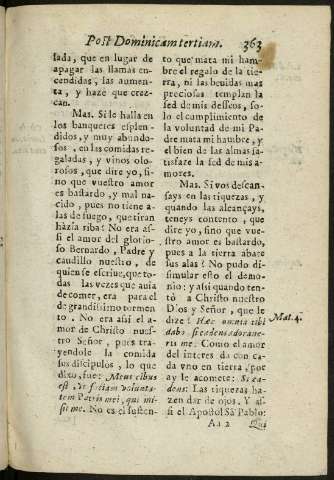 Post Dominicam tertiam. 363
sada, que en lugar de
apagar las llamas en-
cendidas, las aumen-
ta, y haze que crez-
can.
Mas. Si le halla en
los banquetes esplen-
didos, y muy abundo-
sos, en las comidas re-
galadas, y vinos olo-
rosos, que dire yo, si-
no que vuestro amor
es bastardo, y mal na-
cido, pues no tiene a-
las de fuego, que tiran
hàzia riba? No era as-
si el amor del glorio-
so Bernardo, Padre y
caudillo nuestro, de
quien se escriue, que to
das las vezes que auia
de comer, era para el
de grandissimo tormen
to. No era assi el a-
mor de Christo nues-
tro Señor, pues tra-
yendole la comida
sus discipulos, lo que
dixo, fue: Meus cibus
est, vt faciam volunta-
tem Patris mei, qui mi-
sit me. No es el susten-
to que mata mi ham-
bre el regalo de la tie-
rra, ni las beuidas mas
preciosas templan la
sed de mis desseos, so-
lo el cumplimiento de
la voluntad de mi Pa-
dre mata mi hambre, y
el bien de las almas sa-
tisfaze la sed de mis a-
mores.
Mas. Si vos descan-
says en las riquezas, y
quando las alcançays,
teneys contento, que
dire yo, sino que vue-
stro amor es bastardo,
pues a la tierra abate
sus alas? No pudo di-
simular esto el demo-
nio: y assi quando ten-
tò a Christo nuestro
Dios y Señor, que le
dize? Hæc omnia tibi
dabo, si cadens adorane-
ris me. Como el amor
del interes da con ca-
da vno en tierra, por
ay le acomete: Si ca-
dens: Las riquezas ha-
zen dar de ojos. Y as-
si el Apostol Sã Pablo:
Mat. 4.
Aa 2 Qui